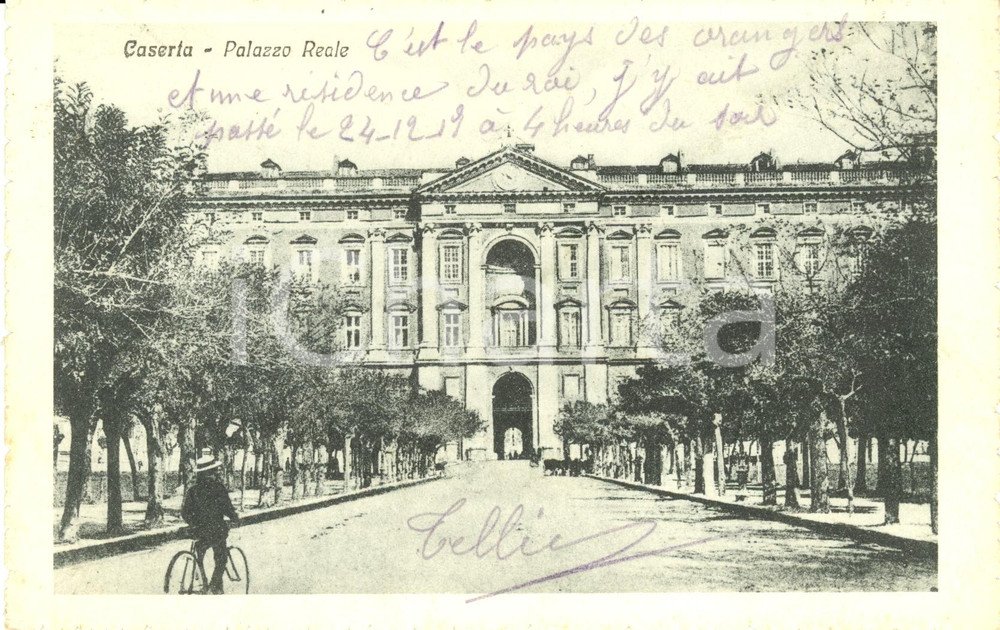 Caserta - Palazzo Reale C'est le pays des orangers
et une résidence du roi, j'y ait
passé le 24-12-19 à 4 heures du soir
Cellie